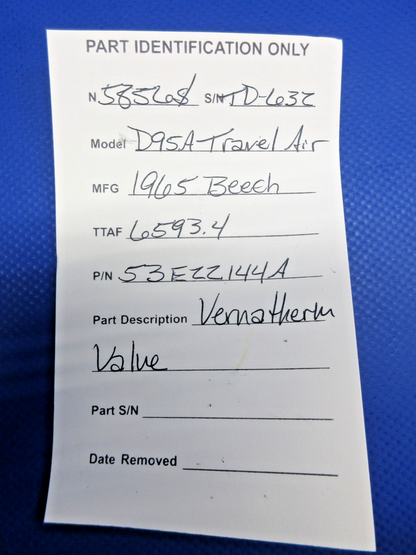 PART IDENTIFICATION ONLY
N 5856S S/N TD-632
Model D95A Travel Air
MFG 1965 Beech
TTAF 6593.4
P/N 53E22144A
Part Description Vernatherm
Value
Part S/N
Date Removed